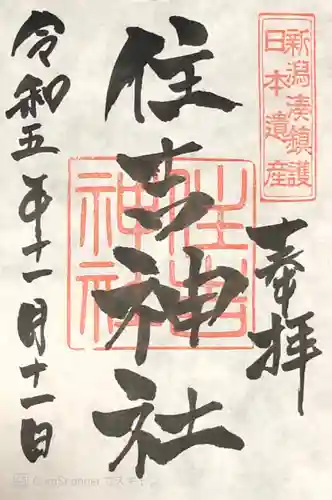 新潟湊鎮護
日本遺産
奉拝
住吉神社
住吉
神社
令和五年十一月十一日
CamScanner でスキャン